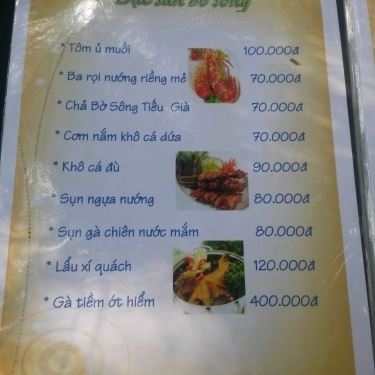 Đặc sản bờ sông
* Tôm ủ muối 100.000đ
* Ba rọi nướng riềng mẻ 70.000đ
* Chả Bờ Sông Tiếu Già 70.000đ
* Cơm nắm khô cá dứa 70.000đ
* Khô cá đù 90.000đ
* Sụn ngựa nướng 80.000đ
* Sụn gà chiên nước mắm 80.000đ
* Lẩu xí quách 120.000đ
* Gà tiềm ớt hiểm 400.000đ